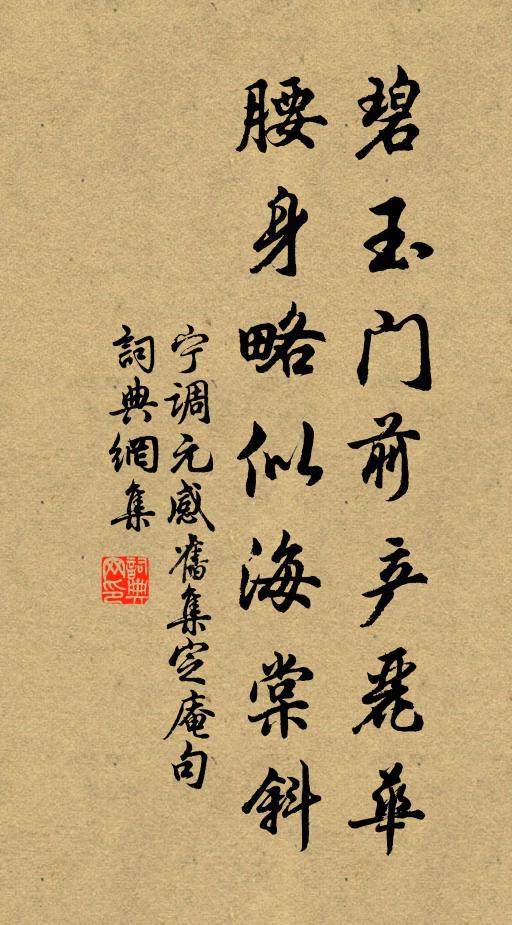 碧玉门前产丽华
腰身略似海棠斜
宁调元感旧集定庵句
詞典網集
詞典网印